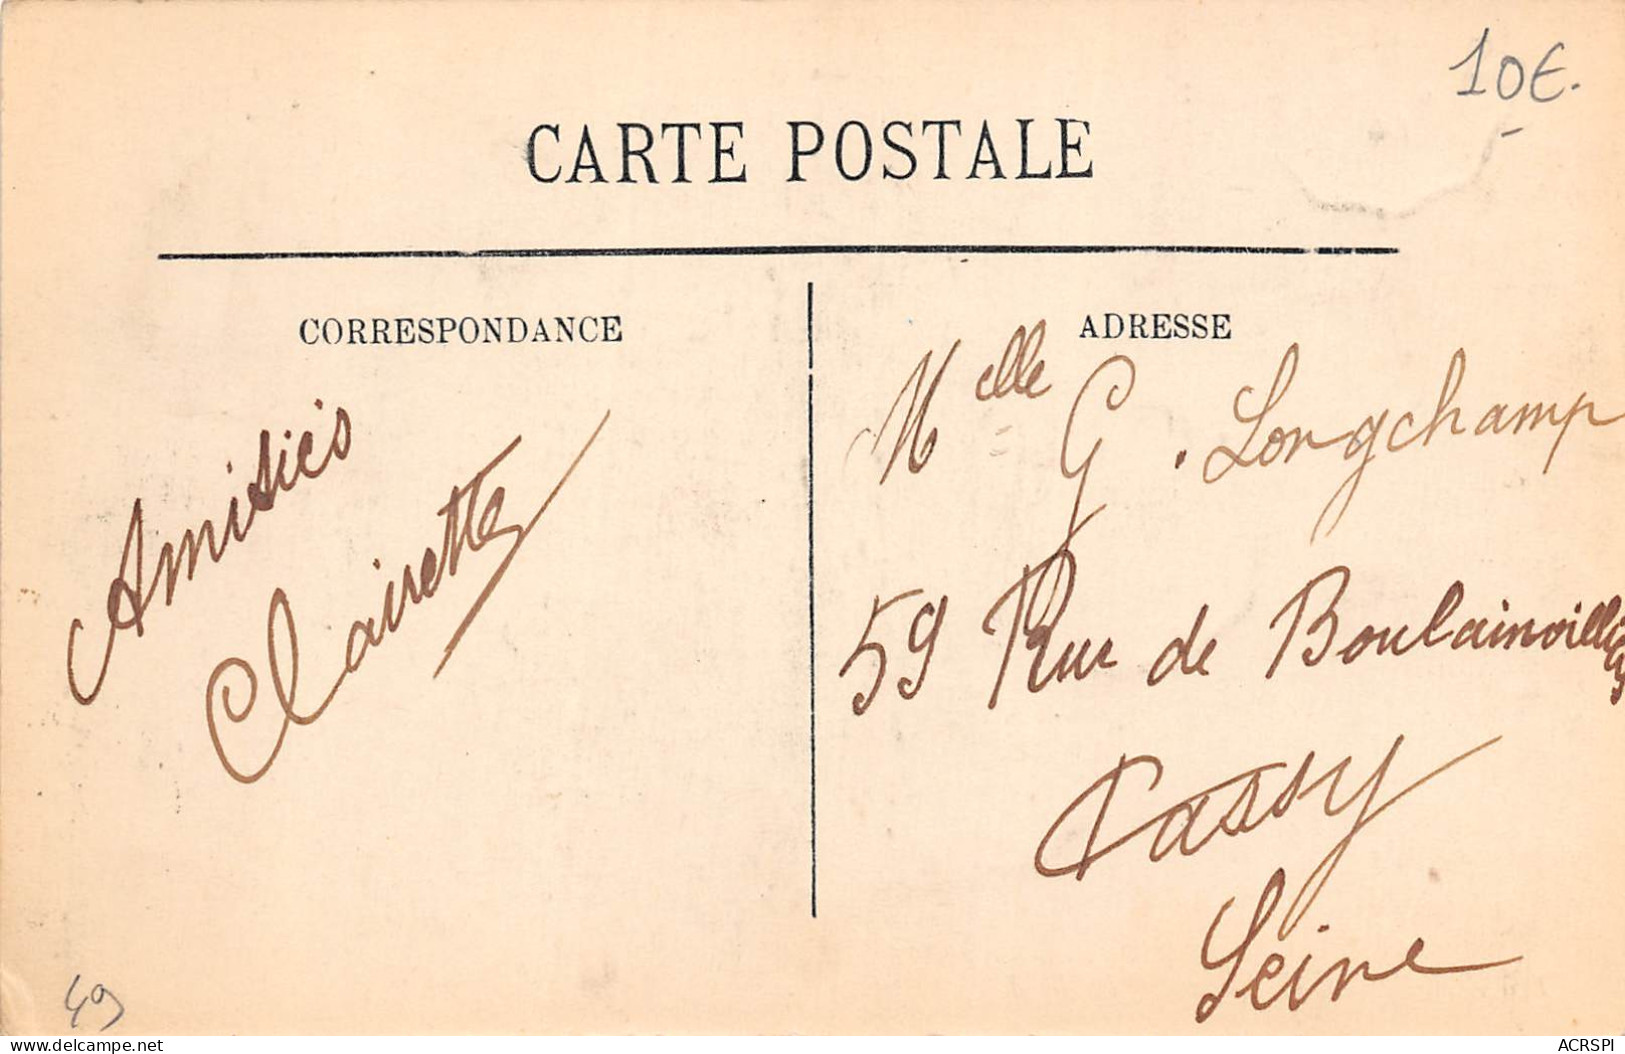 10€.
CARTE POSTALE
CORRESPONDANCE
Amitiés
Clairette
ADRESSE
Melle G. Longchamp
59 Rue de Boulainvilliers
Passy
Seine
49
delcampe.net
ACRSPI